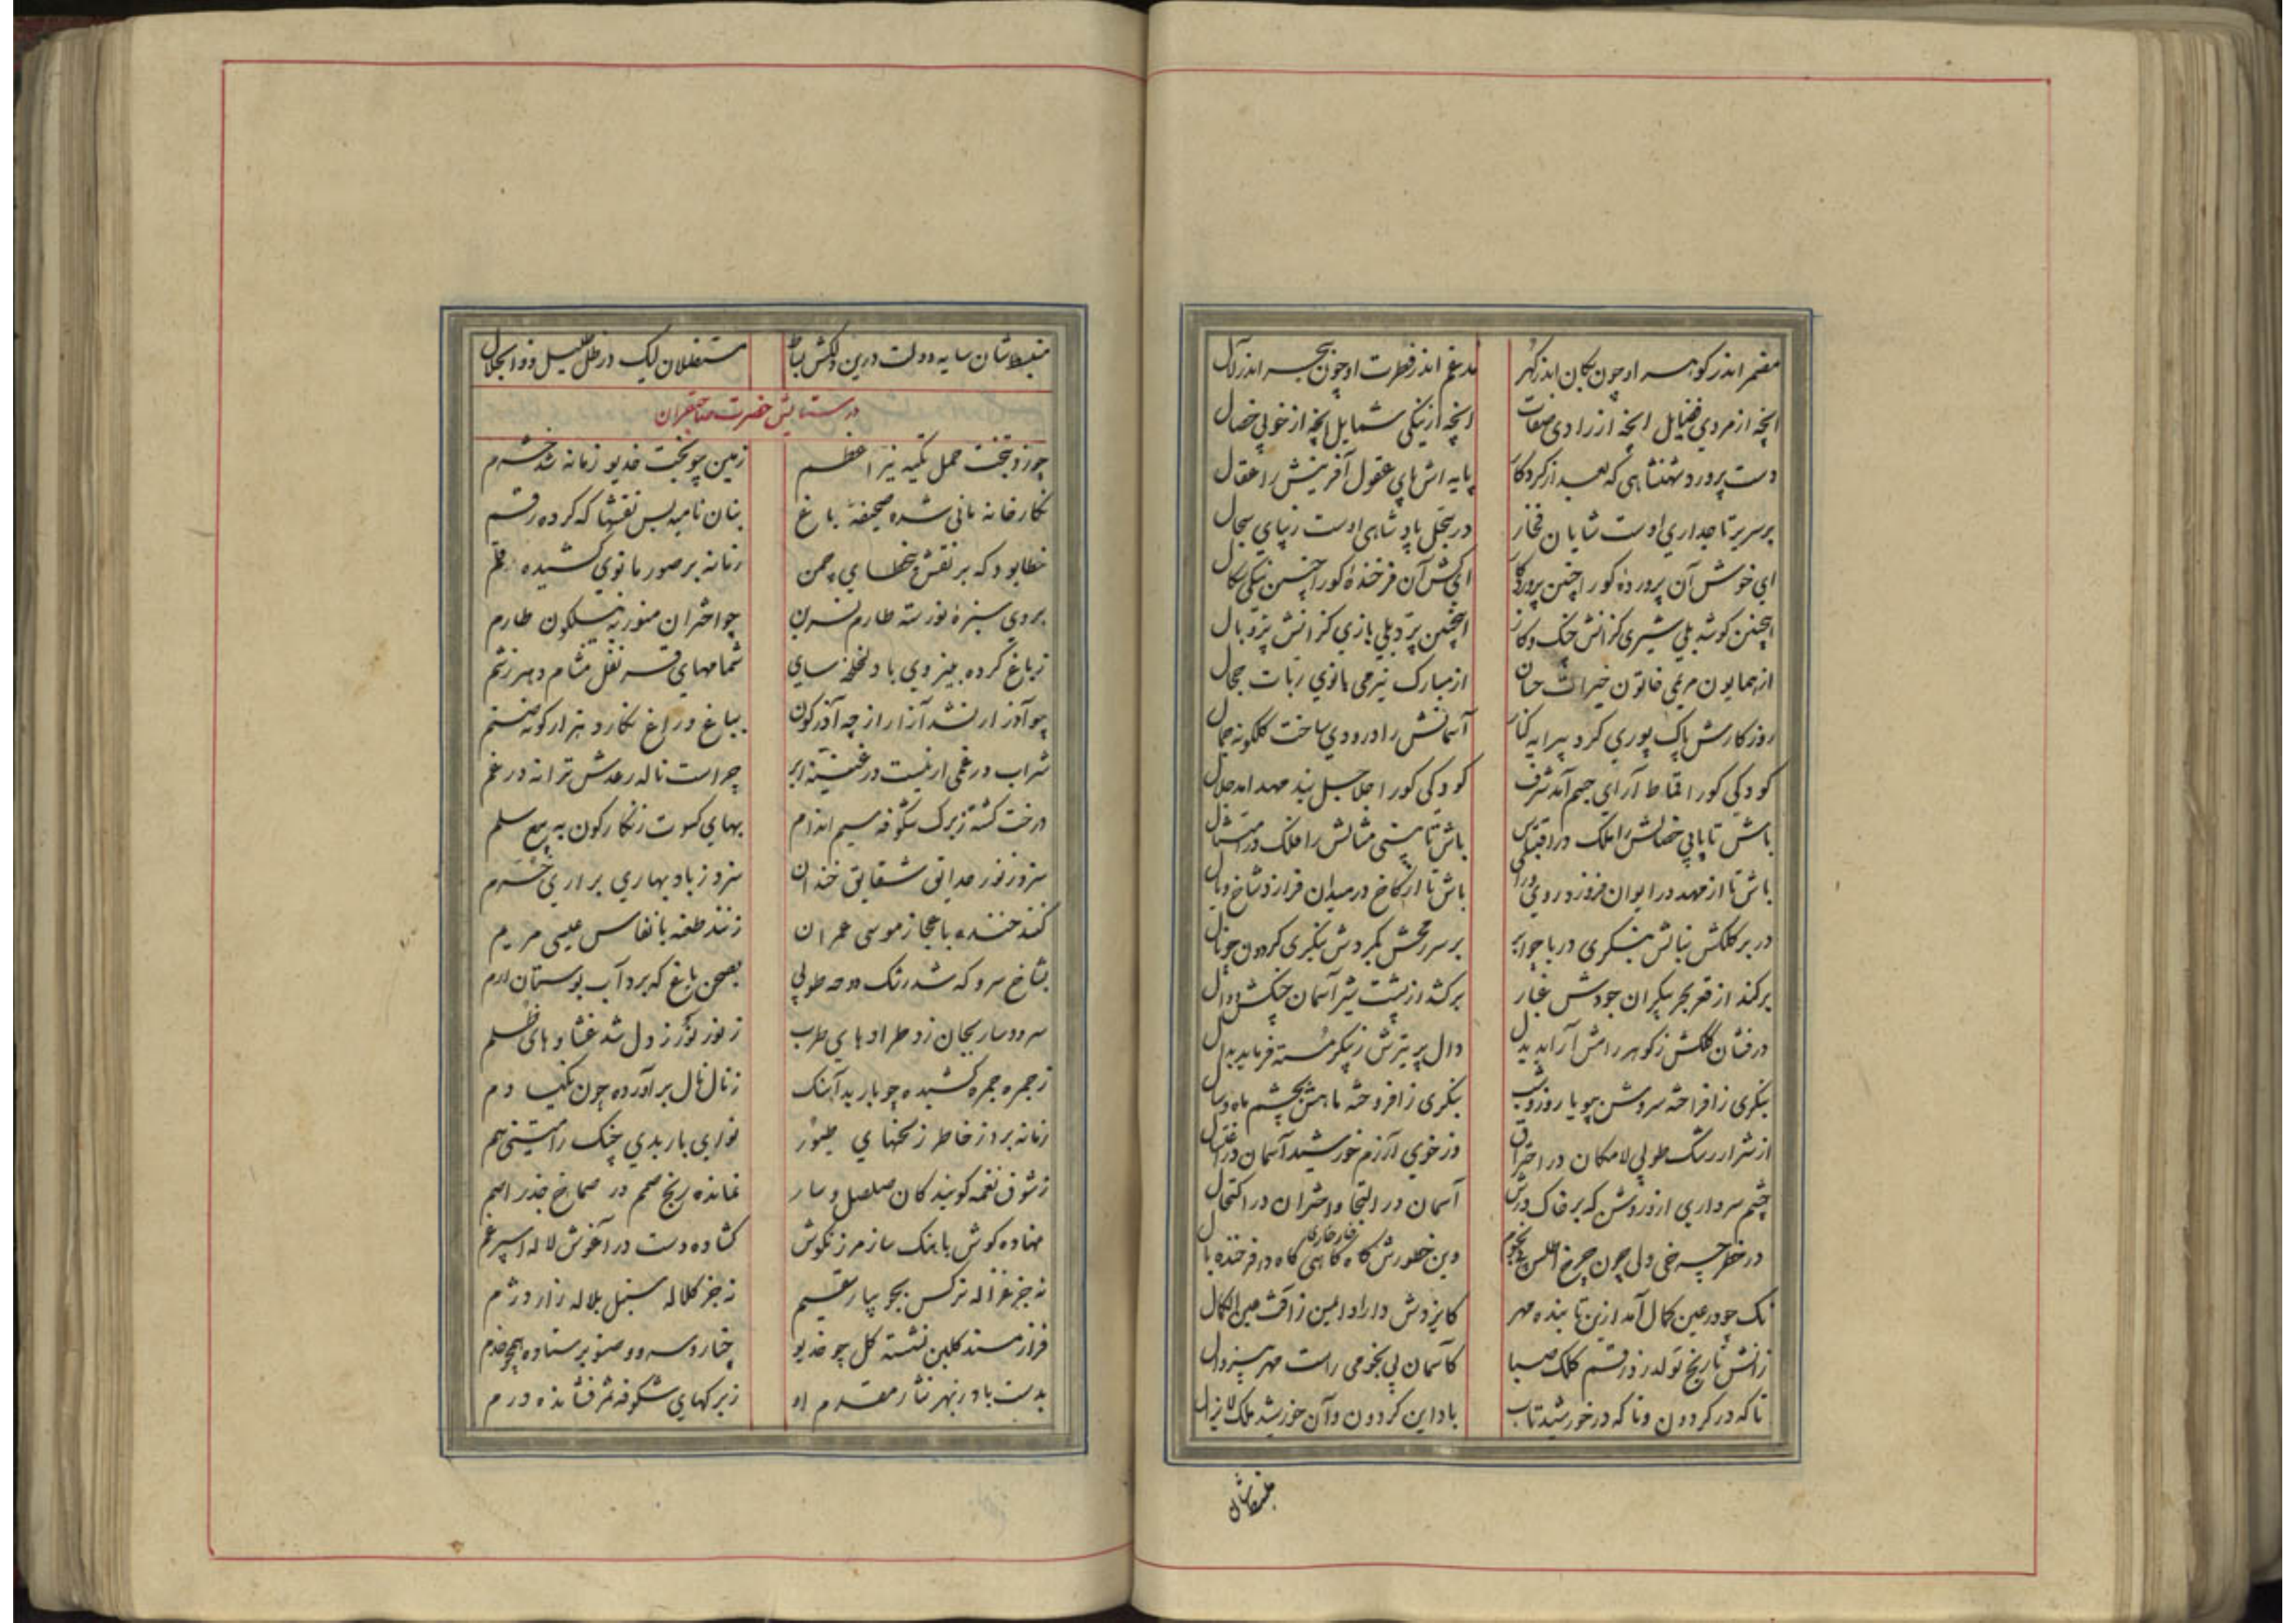 مضمر اندر گوهر او چون بکان اندر گهر مدغم اندر فطرت او چون ببحر اندر لآل
انچه از مردی فضایل انچه از رادی صفات انچه از نیکی شمایل انچه از خوبی خصال
دست پرورد شهنشاهی که بعد از کردکار پایه اش پای عقول آفرینش را عقال
بر سریر تاجداری اوست شایان فخار در سجل پادشاهی اوست زیبای سجال
ای خوش آن پرورده کورا چنین پروردکار ای کش آن فرخنده کورا چنین نیکی سکال
اینچنین کوشد بلی شیری کزانش چنک و کاز اینچنین پرد بلی بازی کزانش پر و بال
از همایون مریمی خاتون خیرات حسان از مبارک نیرمی بانوی ربات حجال
روزکارش پاک پوری کرد پیرایه کنار آسمانش راد رودی ساخت کلکونه جمال
کودکی کورا قماط آرای جسم آمد شرف کودکی کورا جلاجل بند مهد آمد جلال
باش تا یابی خصالش را ملک در اقتباس باش تا بینی مثالش را فلک در امتثال
باش تا از مهد در ایوان فروزد روی و رای باش تا از کاخ در میدان فرازد شاخ و یال
در بر کلکش بنانش بنکری دریا جو ابر بر سر رمحش بکردش بنکری کردون جو نال
برکند از قعر بحر بیکران جودش غبار برکشد از پشت شیر آسمان چنکش دوال
درفشان کلکش ز کوهر رامش آراید بدل دال پر تیرش ز پیکر مسته فرماید بدال
بنکری زافراخته سروش بپویا روز و شب بنکری زافروخته ماهش بچشم ماه و سال
از شرار رشک طوبی لامکان در احتراق وز خوی آزرم خورشید آسمان در اغتسال
چشم سرداری ازو روشن که بر خاک درش آسمان در التجا و اختران در اکتحال
در خطر چرخی ولی چون چرخ اطلس بی نجوم وین خطورش کاه کاهی کاه در فرخنده بال
نک چو در عین کمال آمد ازین تابنده مهر کایزدش دارا در ایمن ز آفت عین الکمال
زانش تاریخ تولد زد رقم کلک صبا کآسمان بی نجومی راست مهر بیزوال
تا که در کردون و تا که در خورشید تاب باد این کردون و آن خورشید ملک لایزال
منبسط شان
منبسط شان سایه دولت درین دلکش بساط مستظلان لیک در ظل ظلیل ذو الجلال
در ستایش حضرت صاحبقران
چو زد بتخت حمل تکیه نیر اعظم زمین چو بخت خدیو زمانه شد خرم
نکارخانه مانی شده صحیفه باغ بنان نامیه بس نقشها که کرده رقم
خطا بود که بر نقش خطای چمن زمانه بر صور مانوی کشیده قلم
بروی سبزه نورسته طارم نسرین چو اختران منور به نیلکون طارم
ز باغ کرده بنیروی باد لخلخه سای شمامهای قرنفل مشام دهر زشم
چو آذر ار نشد آزار از چه آذرکون بباغ و راغ نکارد هزار کونه صنم
شراب در غمی ار نیست در غنینه ابر چراست ناله رعدش ترانه در غم
درخت کشته ز برک شکوفه سیم اندام بهای کسوت زنکارکون به بیع سلم
سزد ز نور حدایق شقایق خندان سزد ز باد بهاری براری خرم
کنند خنده باعجاز موسی عمران زنند طعنه بانفاس عیسی مریم
بشاخ سرو که شد رشک دوحه طوبی بصحن باغ که برد آب بوستان ارم
سرود سار یجان زد طرادهای طرب ز نور نور ز دل شد غشاوهای ظلم
ز حمره حمره کشیده چو باربد آهنک ز نال نال برآورده چون نکیسا دم
زمانه برد ز خاطر ز لحنهای طیور نوای باربدی چنک رامتینی هم
ز شوق نغمه کویندکان صلصل و سار نمانده رنج صمم در صماخ جذر اصم
نهاده کوش باهنک ساز مرزنکوش کشاده دست در آغوش لاله اسپرغم
نه جز غزاله نرکس بجویبار سقیم نه جز کلاله سنبل بلاله زار دژم
فراز مسند کلبن نشسته کل چو خدیو چنار و سرو و صنوبر ستاده همچو خدم
بدست باد ز بهر نثار مقدم او ز برکهای شکوفه ثمر فشانده درم